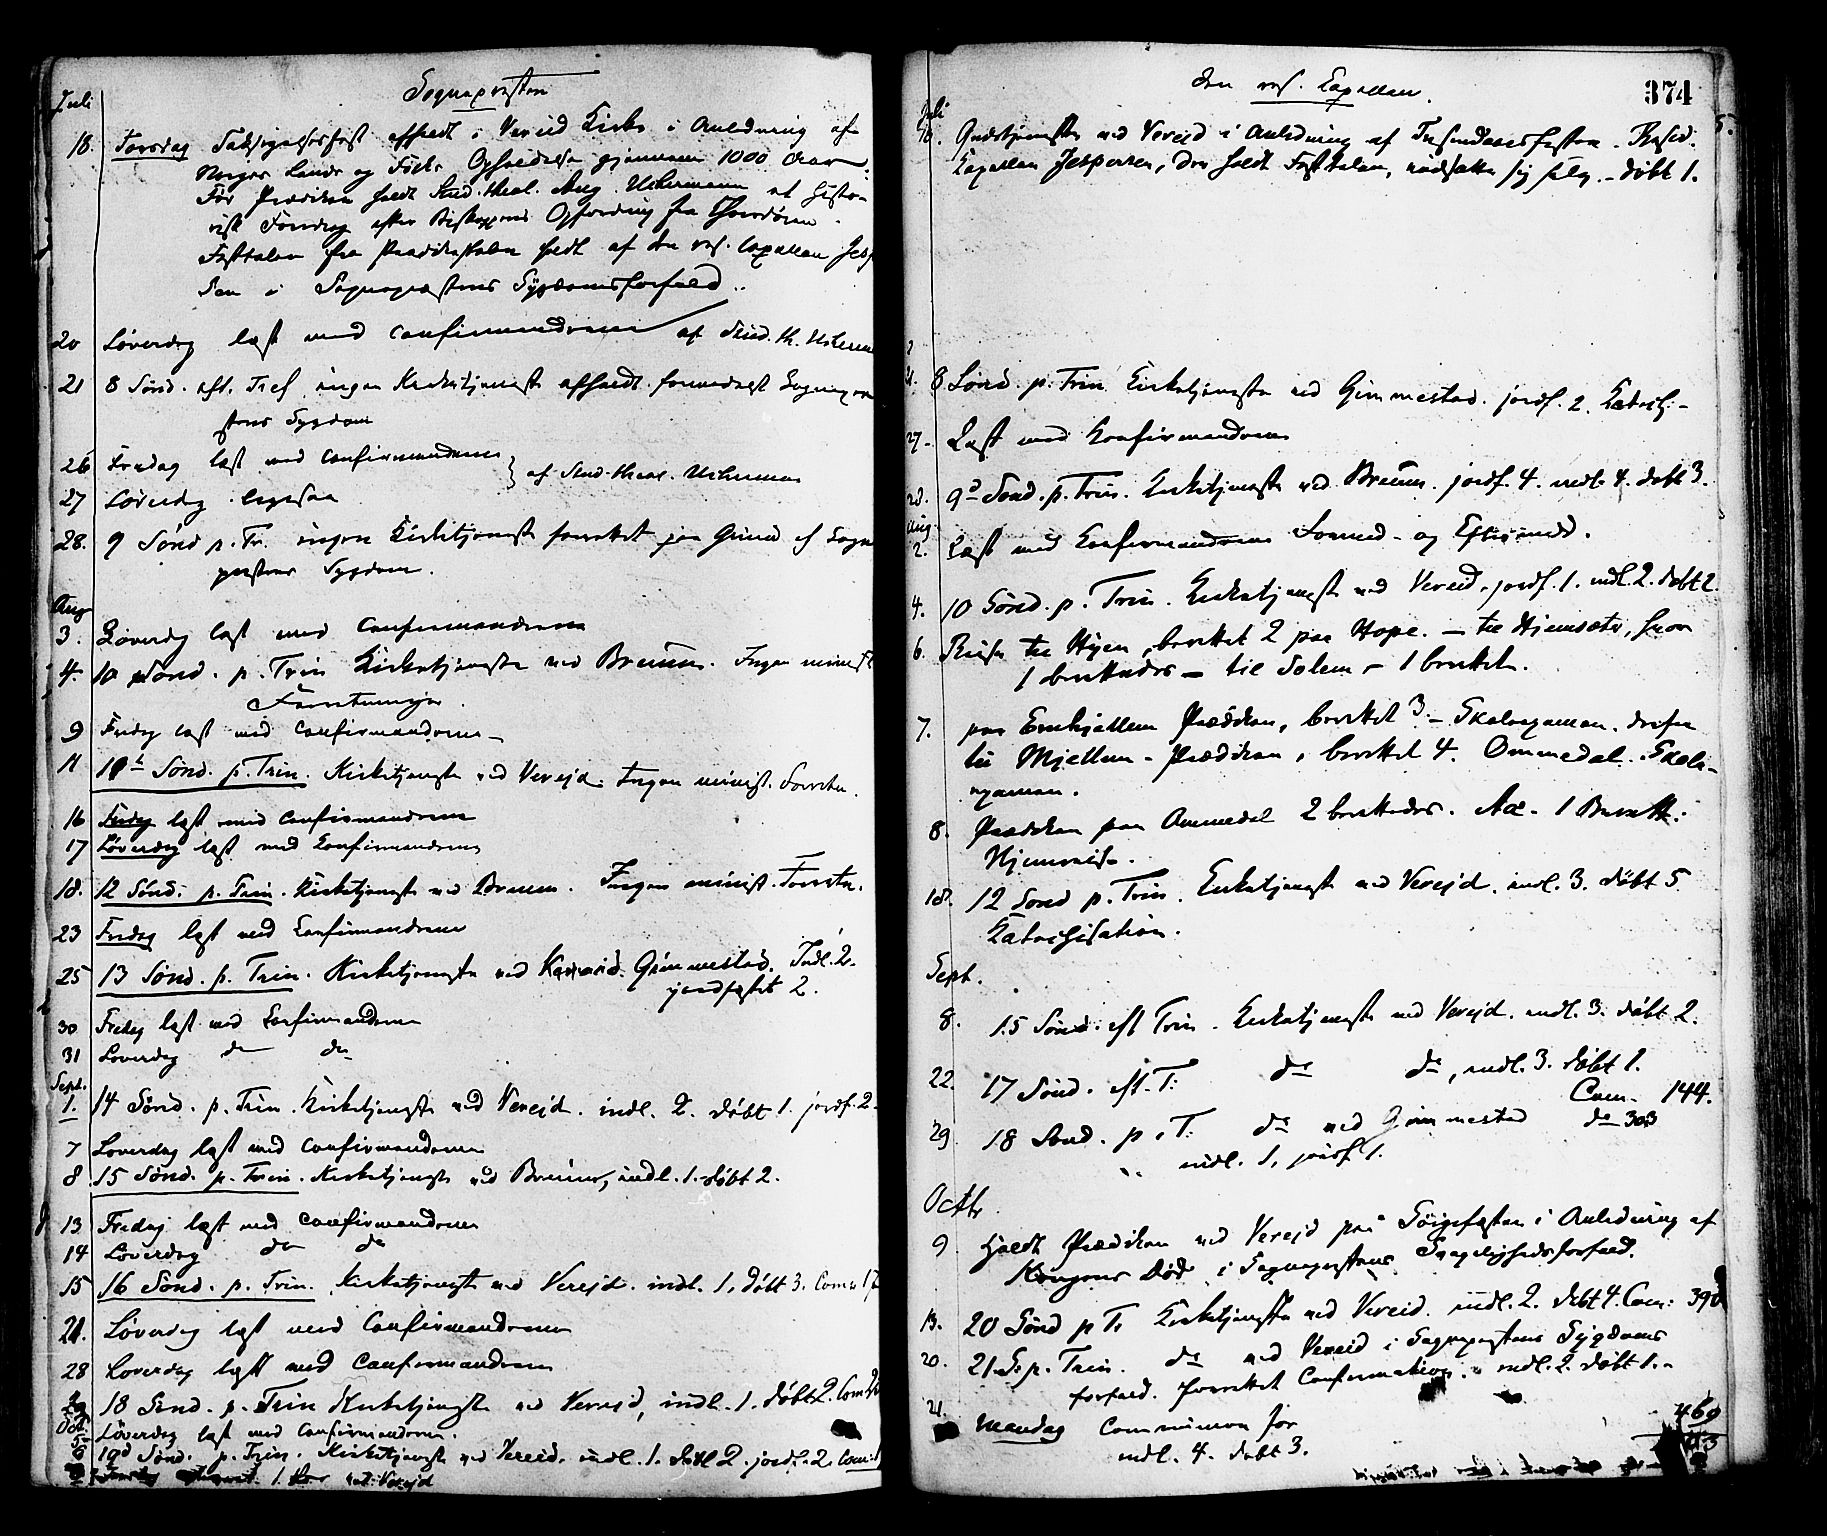 Sognepresten
Juli
18. Torsdag Taksigelsesfest afholdt i Vereid Kirke i Anledning af
Norges Lands og Folks Opholdelse gjennem 1000 Aar.
Før Prædiken holdt Stud. theol. Aug. Uchermann et histo-
risk Foredrag efter Biskoppens Opfordring fra Chordøren.
Festtalen fra Prædikestolen holdt af den res. Capellan Jesp
sen i Sognepræstens Sygdomsforfald.
20 Løverdag læst med Confirmanderne af Stud. th. Ucherm
21 8 Sønd. eft. Tref. ingen Kirketjeneste afholdt formedelst Sognepræ
stens Sygdom
26 Fredag læst med Confirmanderne
27 Løverdag ligesaa
af Stud. theol. Uchermann
28. 9 Sønd p. Tr. ingen Kirketjeneste forrettet paa Grund af Sogne
prestens Sygdom.
Aug
3. Løverdag læst med Confirmanderne
4. 10 Sønd. p. Trin Kirketjeneste ved Breum. Ingen minist
Forretninger.
9 Fredag læst med Confirmanderne
11 11te Sønd. p. Trin. Kirketjeneste ved Vereid. Ingen minist. Forretn.
16 Fredag læst med Confirmanderne
17 Løverdag læst med Confirmanderne
18. 12 Sønd. p. Trin. Kirketjeneste ved Breum. Ingen minist. Forretn.
23 Fredag læst med Confirmanderne
25 13 Sønd. p. Trin. Kirketjeneste ved Gimmestad. Indl. 2.
jordfæstet 2.
30 Fredag læst med Confirmanderne
31 Løverdag do do
Sept.
1. 14 Sønd. p. Trin. Kirketjeneste ved Vereid. indl. 2. døbt 1. jordf. 2.
7 Løverdag læst med Confirmanderne
8. 15 Sønd. p. Trin. Kirketjeneste ved Breum, indl. 1. døbt 2.
13 Fredag læst med Confirmanderne
14 Løverdag do do
15 16 Sønd. p. Trin. Kirketjeneste ved Vereid. indl. 1. døbt 3. Com. 17
21. Løverdag læst med Confirmanderne
28 Løverdag læst med Confirmanderne
29 18 Sønd. p. Trin Kirketjeneste ved Vereid, indl. 1. døbt 2. Com
Oct.
5. Løverdag læst med Confirmanderne.
6 19d Sønd. p. Trin. Kirketjeneste ved Vereid. indl. 1. døbt 2. jordf. 2. Com:
ved Vereid
den res. Capellan.
374
Juli
18. Gudstjeneste ved Vereid i Anledning af Tusendaarsfesten. Resid.
Capellan Jespersen, der holdt Festtalen, indsatte sig selv. - døbt 1.
21. 8 Sønd. p. Trin. Kirketjeneste ved Gimmestad. jordf. 2. Katech. -
27. Læst med Konfirmanderne
28. 9d Sønd. p. Trin. Kirketjeneste ved Breum. jordf. 4. indl. 4. døbt 3.
Aug.
2. Læst med Konfirmanderne Formid- og Eftermidd.
4. 10 Sønd. p. Trin. Kirketjeneste ved Vereid. jordf. 1. indl. 2. døbt 2
6. Reise til Hyen, berettet 2 paa Hope. - til Hjemsæter, hvor
1 berettedes - til Solem - 1 berettet.
7. paa Emhjellem Prædiken, berettet 3 - Skoleexamen. derfra
til Mjellem - Prædiken, berettet 4. Ommedal. Skole-
examen.
8. Prædiken paa Ommedal 2 berettedes. Aa - 1 Berett.
Hjemreise.
18. 12 Sønd p. Trin. Kirketjeneste ved Vereid. indl. 3. døbt 5.
Katechisation.
Sept.
8. 15 Sønd. eft Trin. Kirketjeneste ved Vereid. indl. 3. døbt 2.
22. 17 Sønd. eft. T: do do, indl. 3. døbt 1.
Com. 144.
29 18 Sønd. p. T: do ved Gimmestad do 303
indl. 1. jordf 1.
Octbr
9. Holdt Prædiken ved Vereid paa Sørgefesten i Anledning af
Kongens Død i Sognepræstens Svagelighedsforfald.
13. 20 Sønd p Tr Kirketjeneste ved Vereid. indl. 2. døbt 4. Com: 390
20. 21 S. p. Trin. do ved Vereid i Sognepræstens Sygdoms
forfald. forrettet Confirmation. indl. 2. døbt 1. -
21. Mandag Communion for 469
indl. 4. døbt 3.